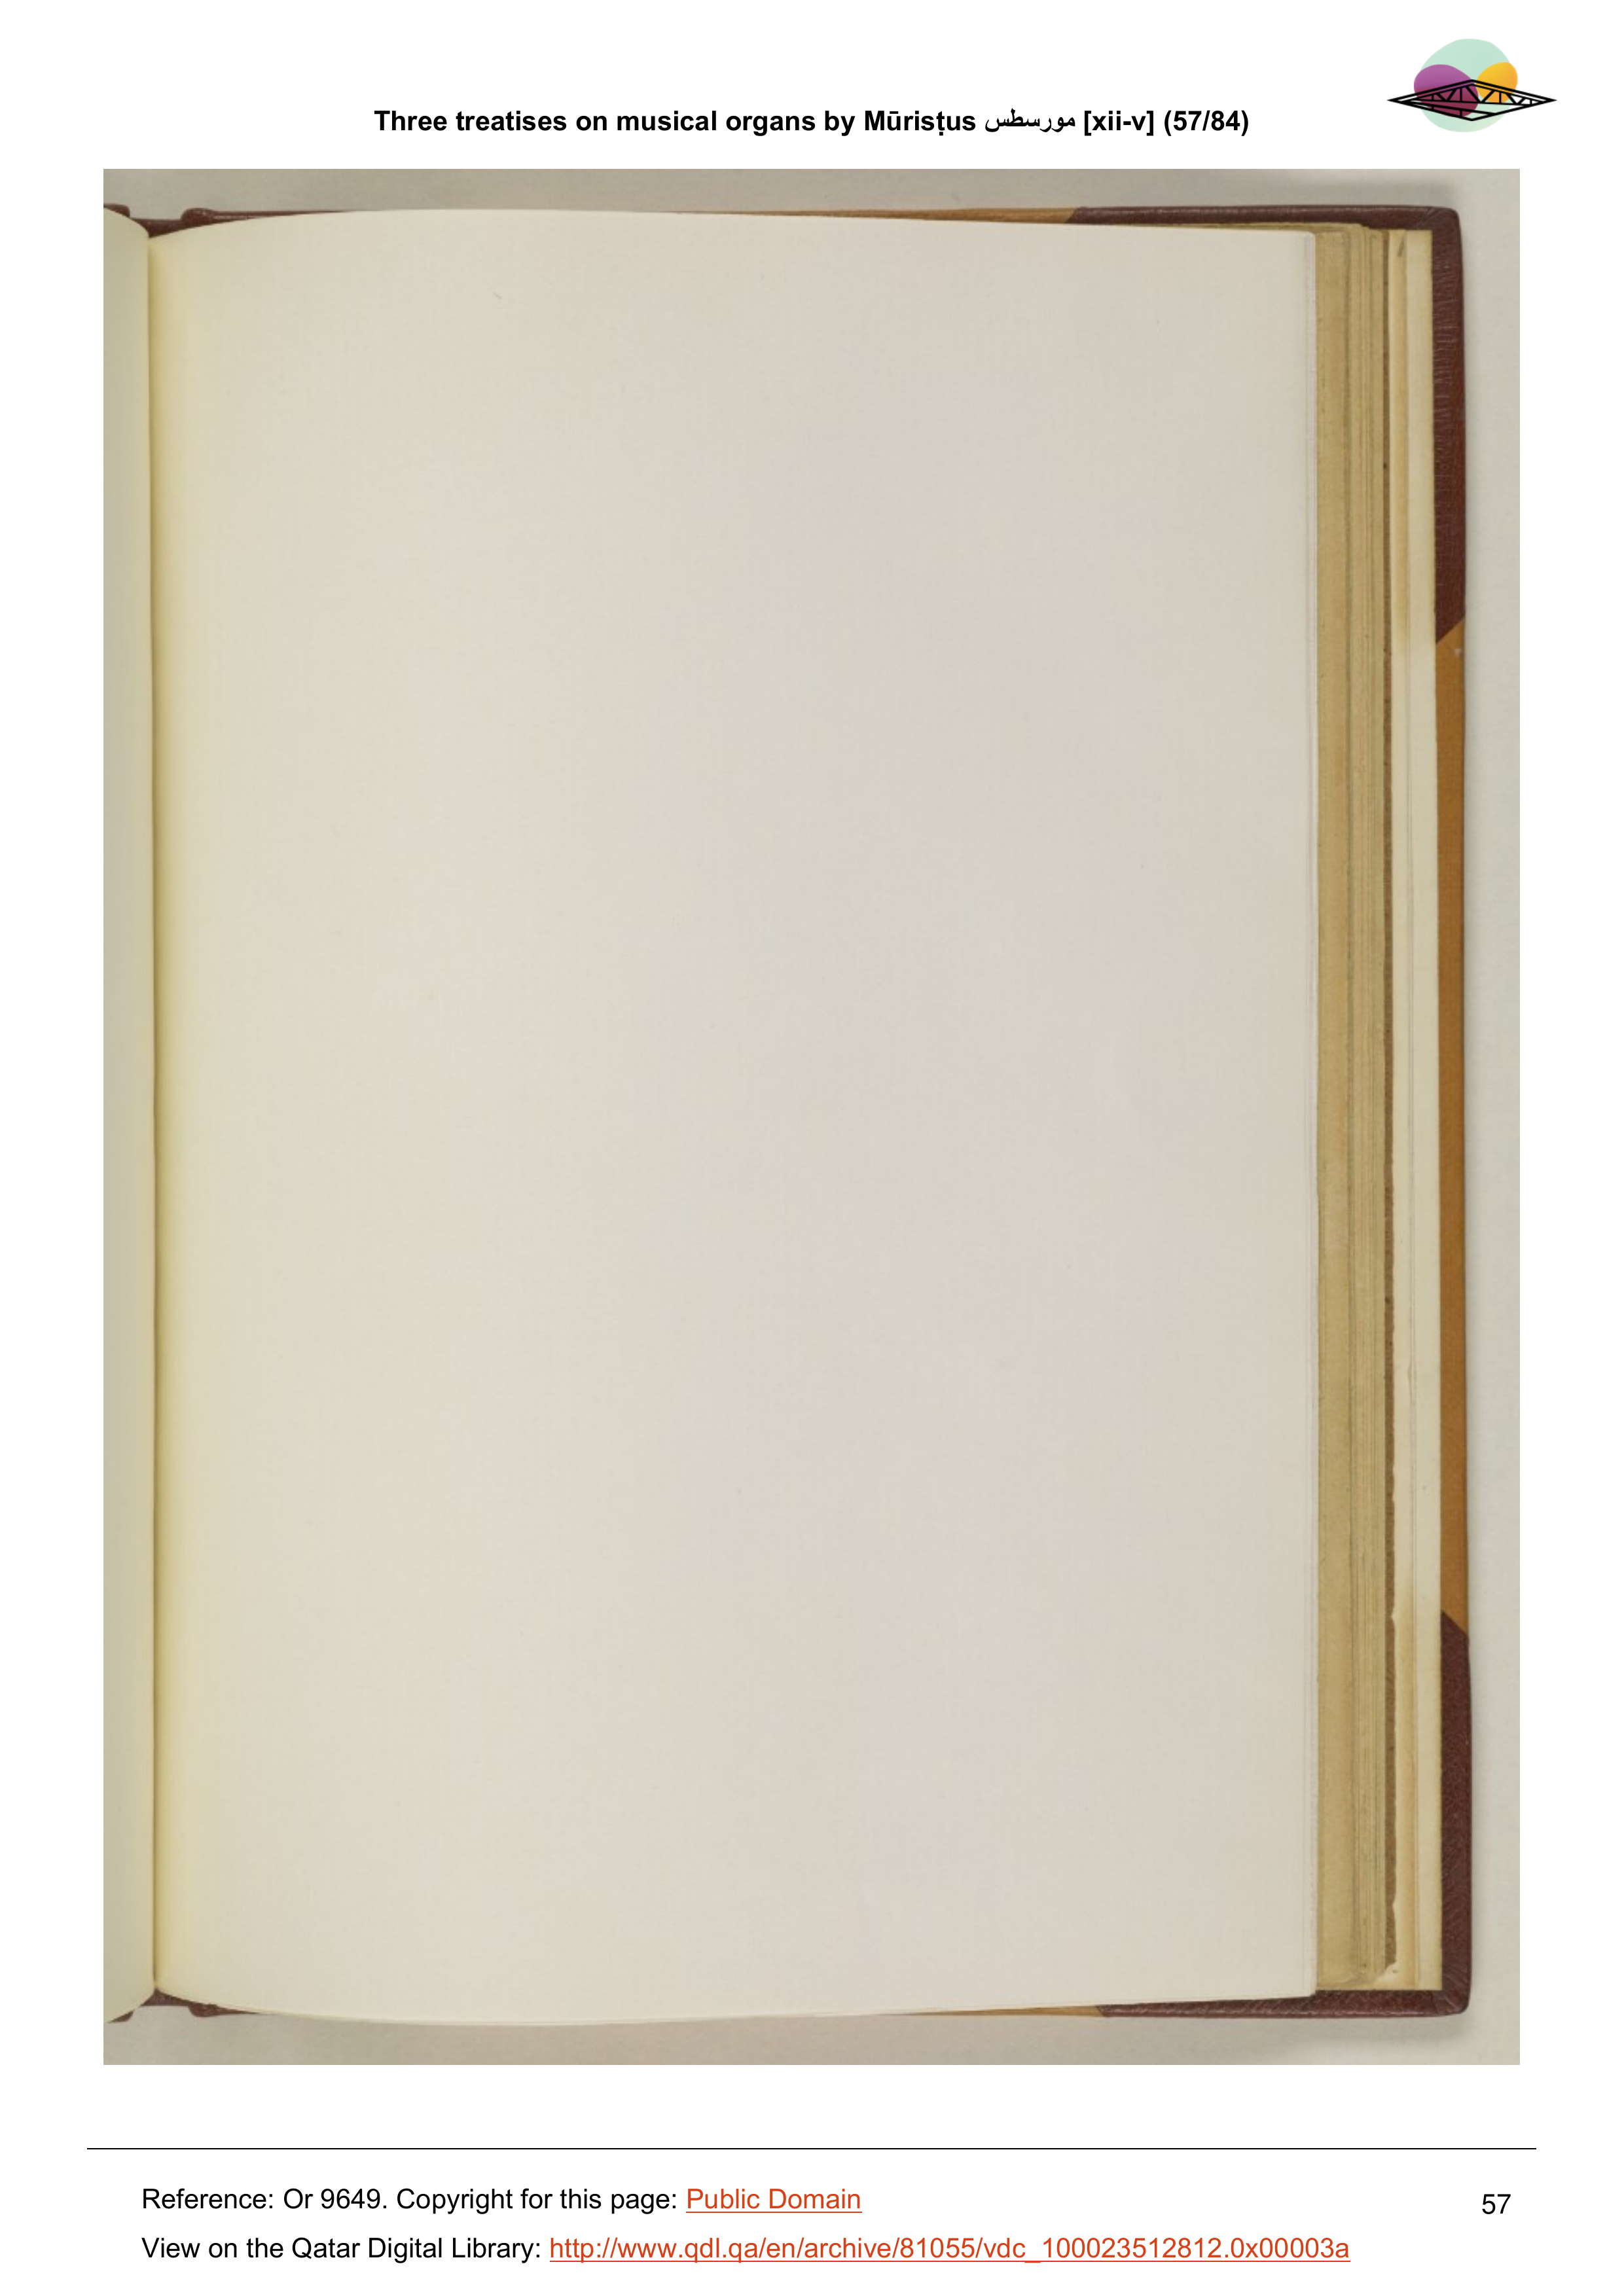 Three treatises on musical organs by Mūrisṭus مورسطس [xii-v] (57/84)
Reference: Or 9649. Copyright for this page: Public Domain
57
View on the Qatar Digital Library: http://www.qdl.qa/en/archive/81055/vdc_100023512812.0x00003a